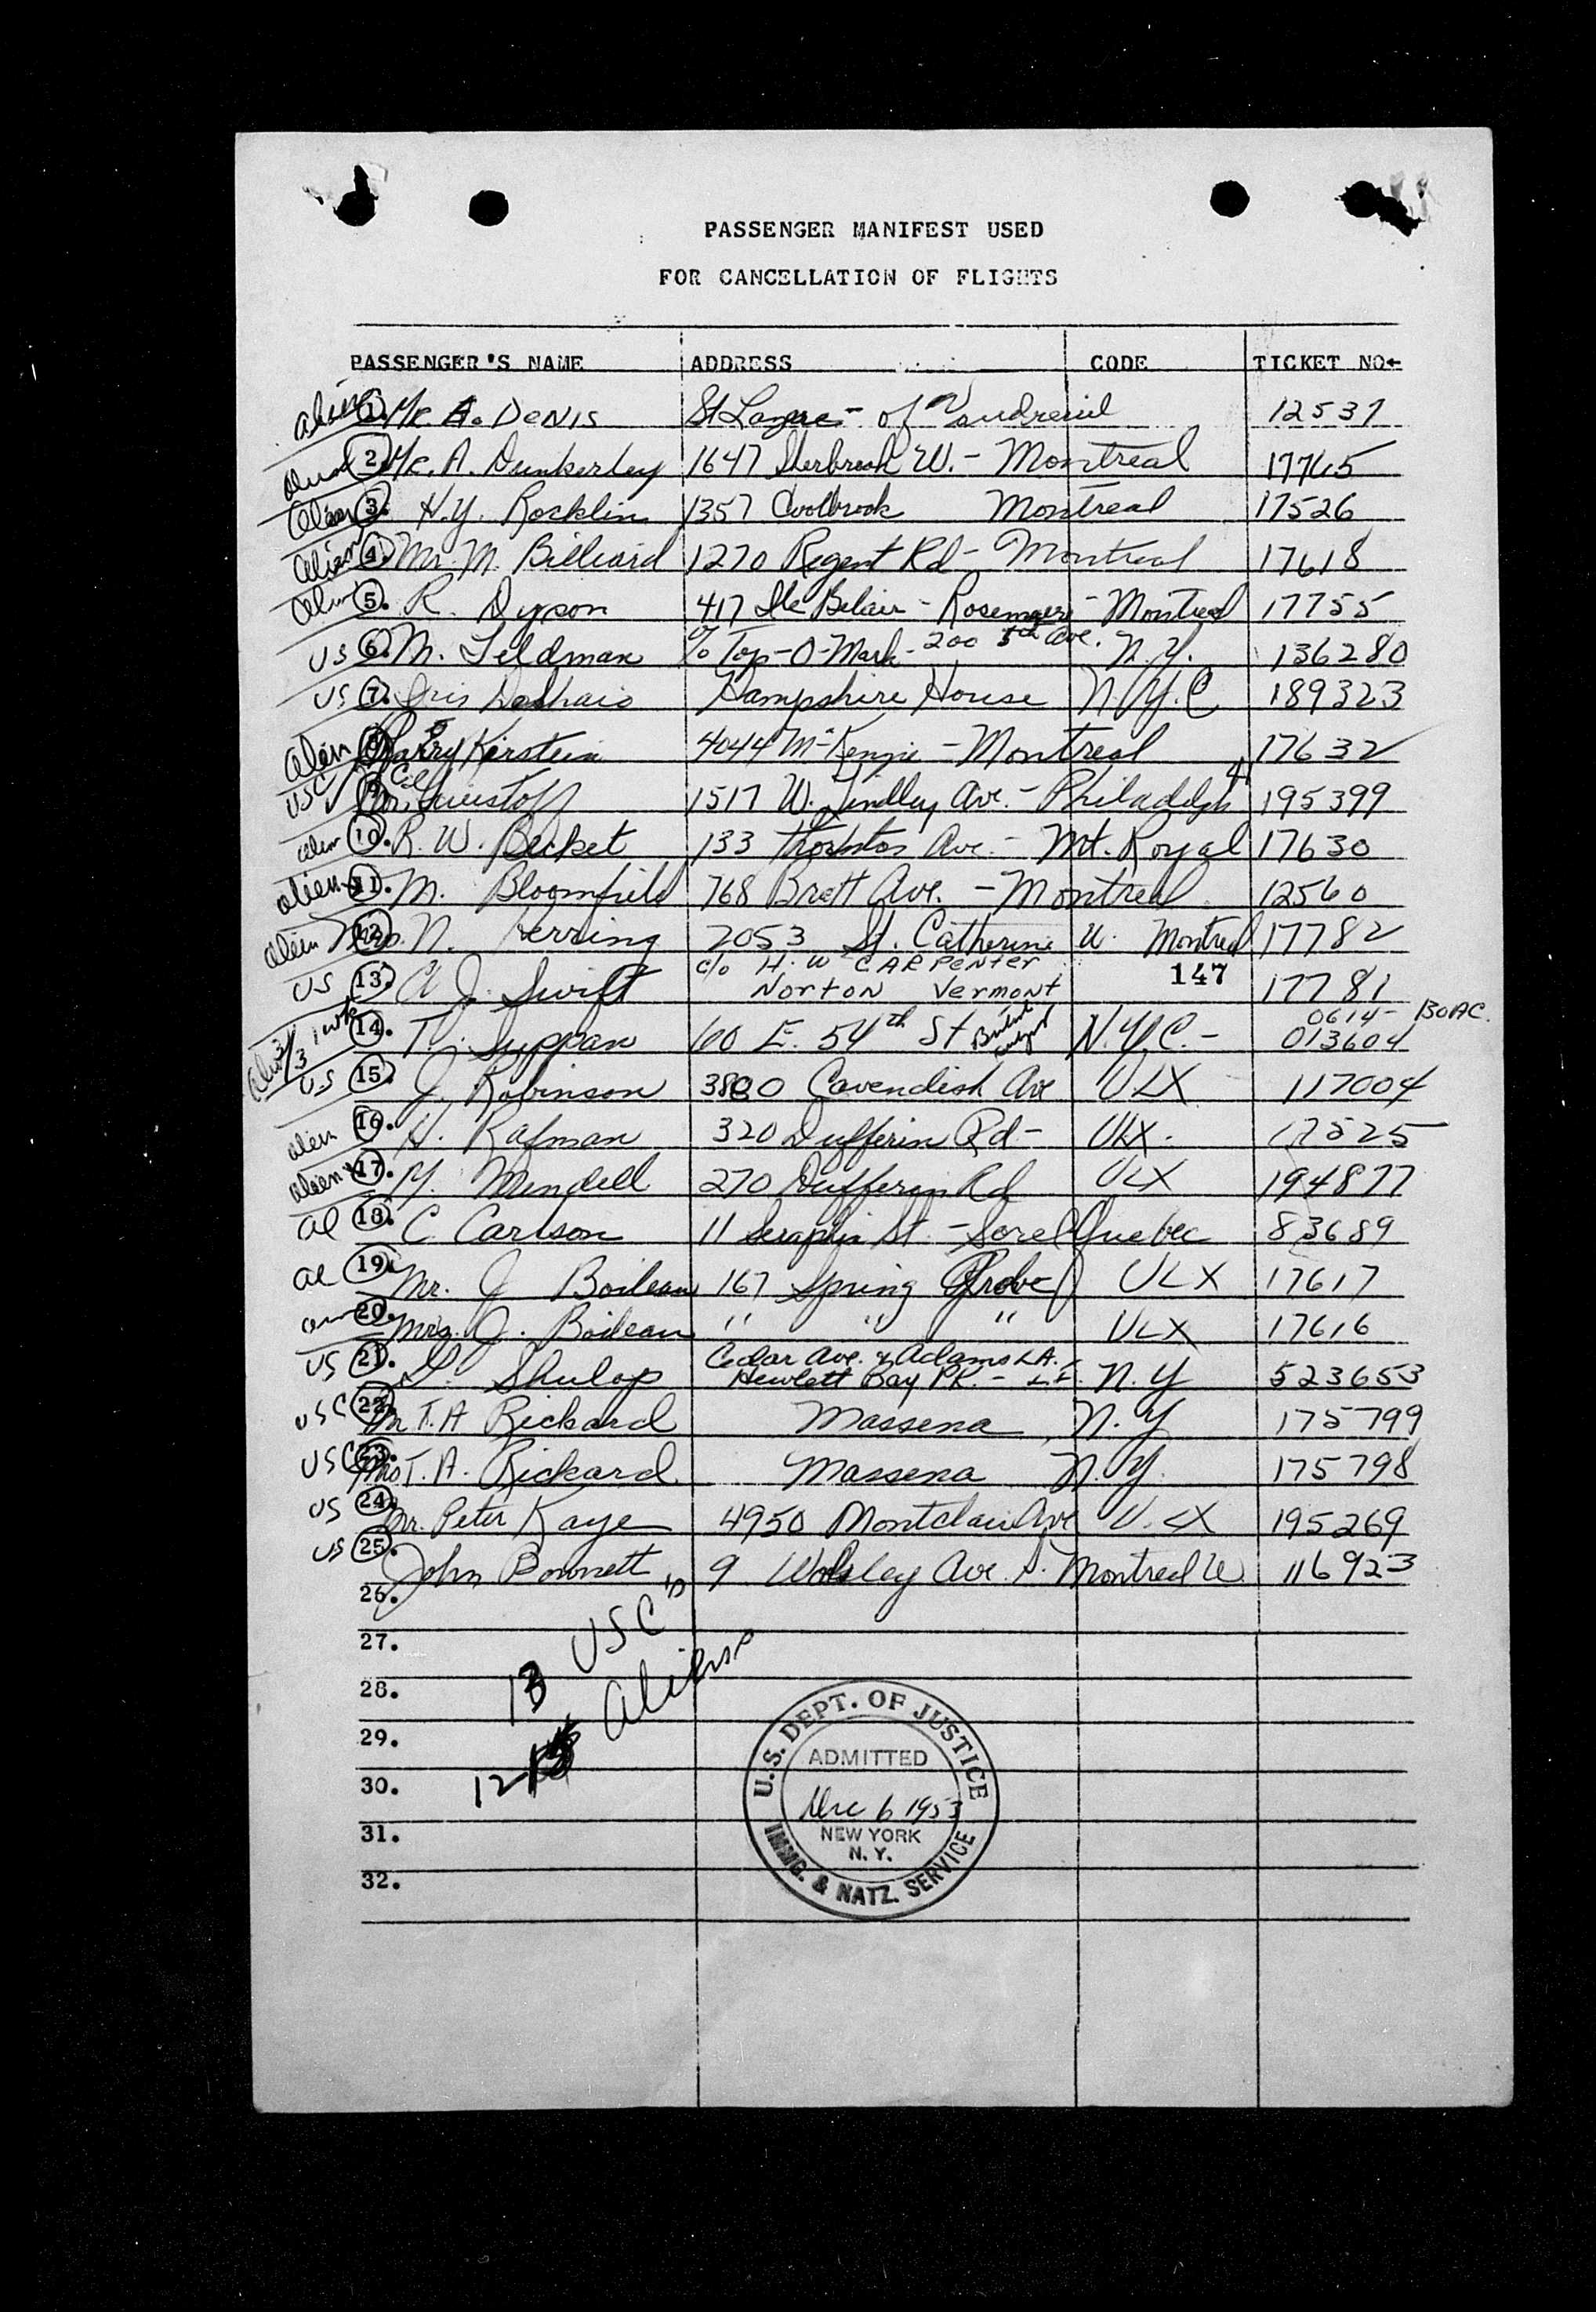 PASSENGER MANIFEST USED
FOR CANCELLATION OF FLIGHTS
PASSENGER'S NAME ADDRESS CODE TICKET NO
alien 1. Mr. A. DeNIS St Lazare - of Vaudreuil 12537
2. Mr. A. Dunkerley 1647 W. - Montreal 17765
alien 3. H.Y. Rocklin 1357 Coolbrook Montreal 17526
alien 4. Mr. M. Billiard 1270 Regent Rd - Montreal 17618
alien 5. R. Dyson 417 Ile Belair - Rosemere - Montreal 17755
US 6. M. Feldman c/o Top-O-Mark - 200 5th Ave. N.Y. 136280
US 7. Hampshire House N.Y.C 189323
alien 8. Harry Kirstein 4044 McKenzie - Montreal 17632
USC 9. 1517 W. Lindley Ave. - Philadelph 195399
alien 10. R. W. Becket 133 Ave. - Mt. Royal 17630
alien 11. M. Bloomfield 768 Brett Ave. - Montreal 12560
alien 12. Mrs. N. Herring 2053 St. Catherine W. Montreal 17782
US 13. A J. Swift c/o H. W CARPENTER
NORTON VERMONT 147 17781
14. T. Suppan 60 E. 54th St N.Y.C. - 0614- BOAC.
013604
US 15. J. Robinson 3800 Cavendish Ave ULX 117004
alien 16. H. Rafman 320 Dufferin Rd - ULX. 17525
alien 17. M. Mendell 270 Dufferin Rd ULX 194877
al 18. C. Carlson 11 Seraphin St. - Sorel Quebec 83689
al 19. Mr. J Boileau 167 Spring Grove ULX 17617
20. Mrs. J. Boileau " " " ULX 17616
US 21. Shulop Cedar Ave. & Adams LA.
Hewlett Bay PK. - L.I. N.Y 523653
USC 22. Mr T. A Rickard Massena, N.Y 175799
USC 23. Mrs T. A. Rickard Massena N.Y. 175798
US 24. Mr. Peter Kaye 4950 Montclair Ave ULX 195269
US 25. John Bonnett 9 Wolsley Ave. S. Montreal W 116923
26.
27.
28.
29.
30.
31.
32.
13 USC's
12 Aliens
U.S. DEPT. OF JUSTICE
ADMITTED
Dec 6 1953
NEW YORK
N. Y.
IMMG. & NATZ. SERVICE